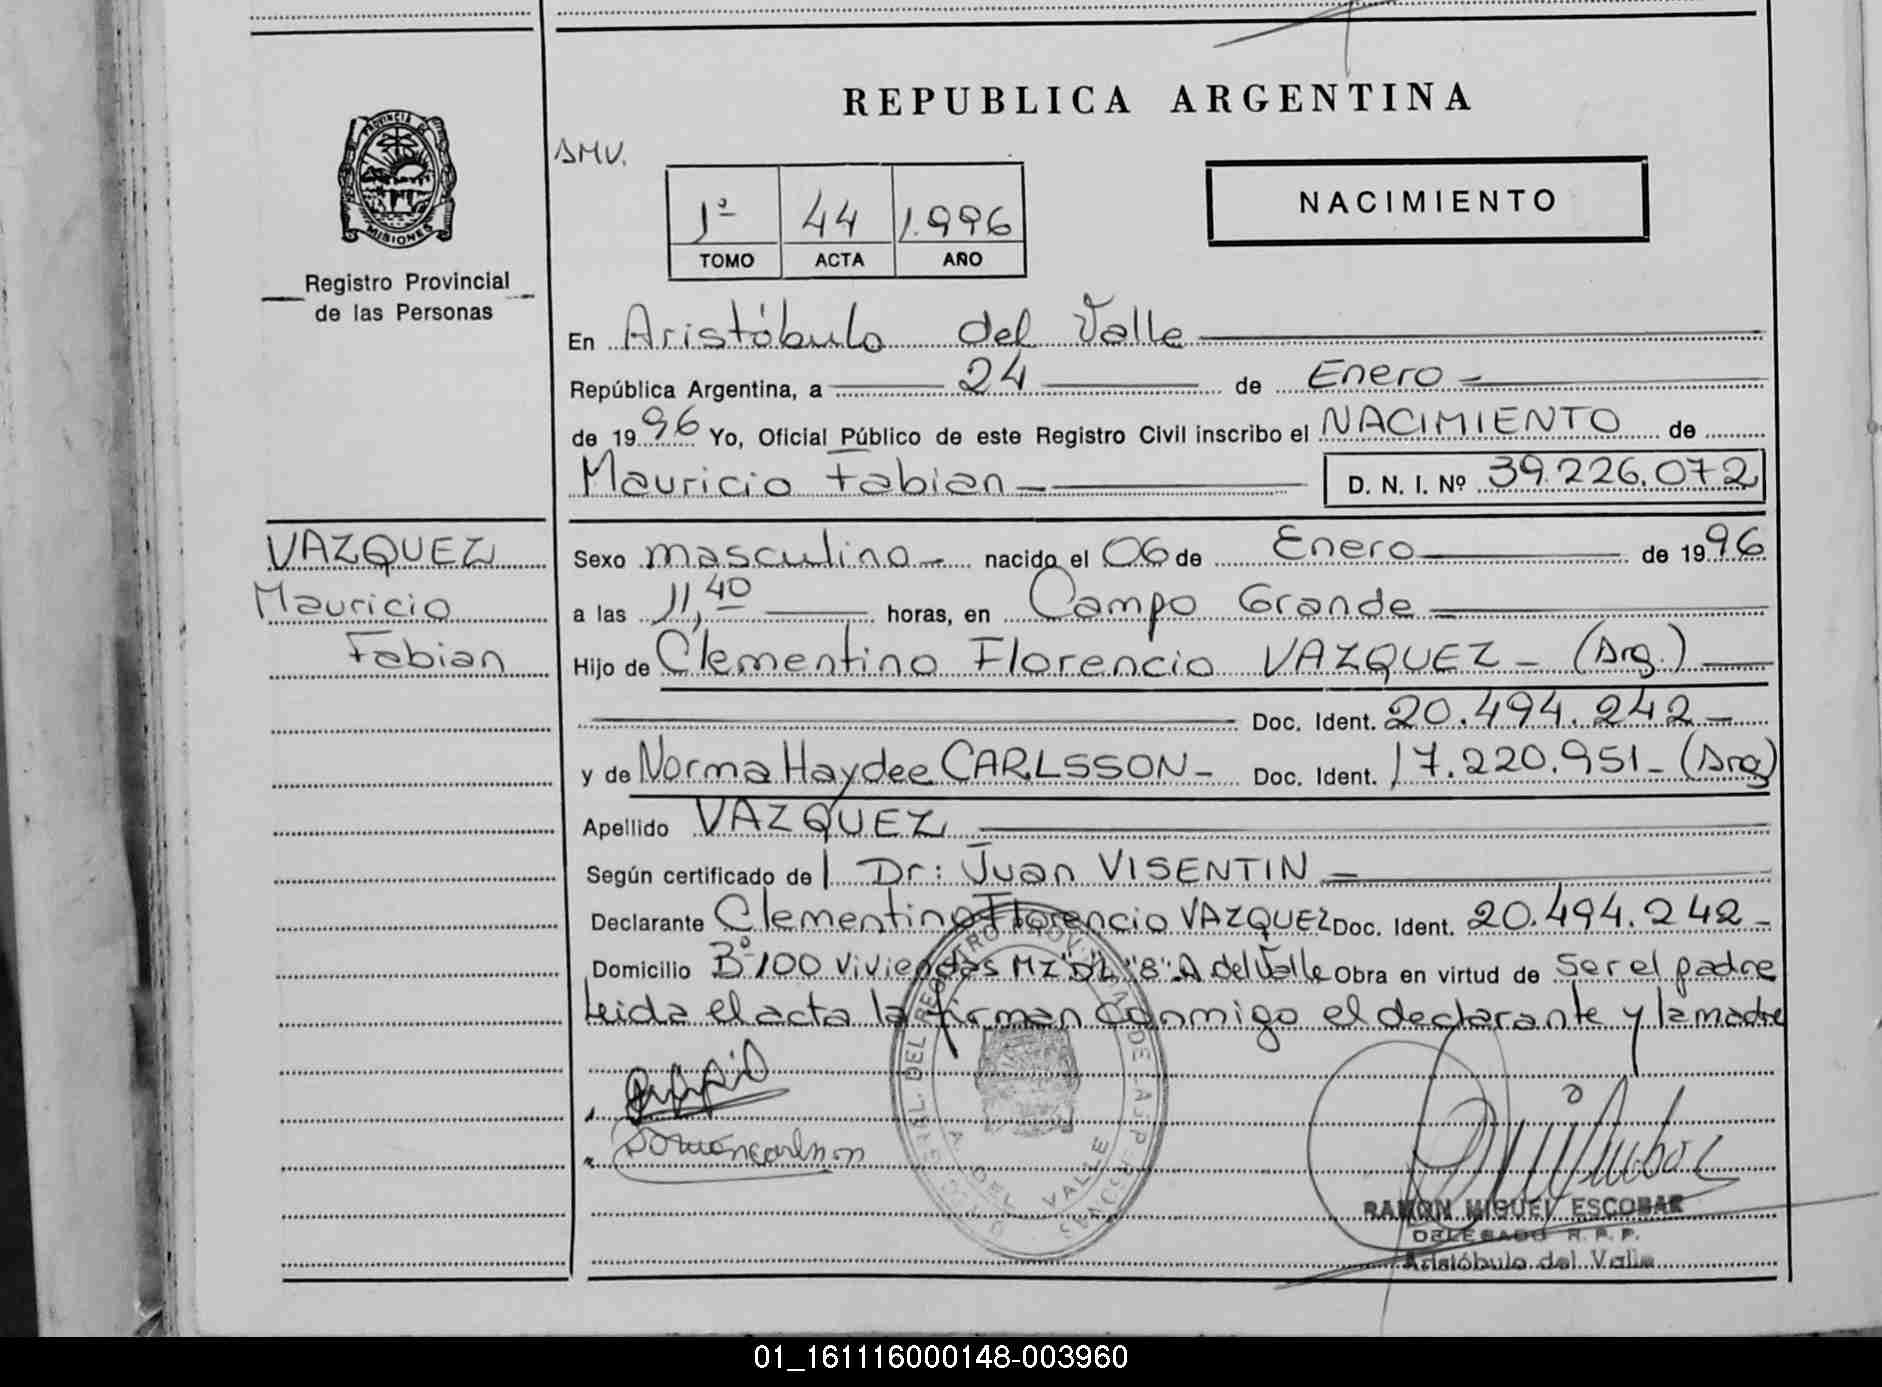 REPUBLICA ARGENTINA
PROVINCIA DE
MISIONES
Registro Provincial
de las Personas
1º 44 1.996
TOMO ACTA AÑO
NACIMIENTO
En Aristóbulo del Valle
República Argentina, a 24 de Enero
de 1996 Yo, Oficial Público de este Registro Civil inscribo el NACIMIENTO de
Mauricio Fabian D. N. I. Nº 39.226.072
VAZQUEZ
Mauricio
Fabian
Sexo masculino nacido el 06 de Enero de 1996
a las 11,40 horas, en Campo Grande
Hijo de Clementino Florencio VAZQUEZ - (Arg.)
Doc. Ident. 20.494.242 -
y de Norma Haydee CARLSSON - Doc. Ident. 17.220.951 - (Arg)
Apellido VAZQUEZ
Según certificado de l Dr: Juan VISENTIN
Declarante Clementino Florencio VAZQUEZ Doc. Ident. 20.494.242 -
Domicilio Bº 100 Viviendas MZ "D" L "8" A del Valle Obra en virtud de Ser el padre
Leida el acta la firman conmigo el declarante y la madre
A. DEL VALLE
RAMON MIGUEL ESCOBAR
DELEGADO R. P. P.
Aristóbulo del Valle
01_161116000148-003960